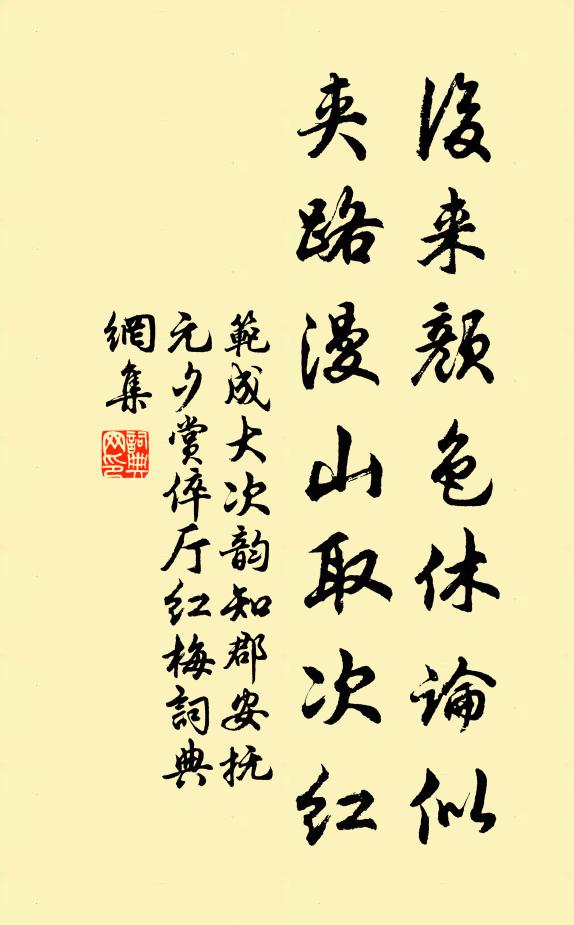 後来颜色休論似
夹路漫山取次红
範成大次韵知郡安抚
元夕赏倅厅红梅詞典
網集
詞典网印